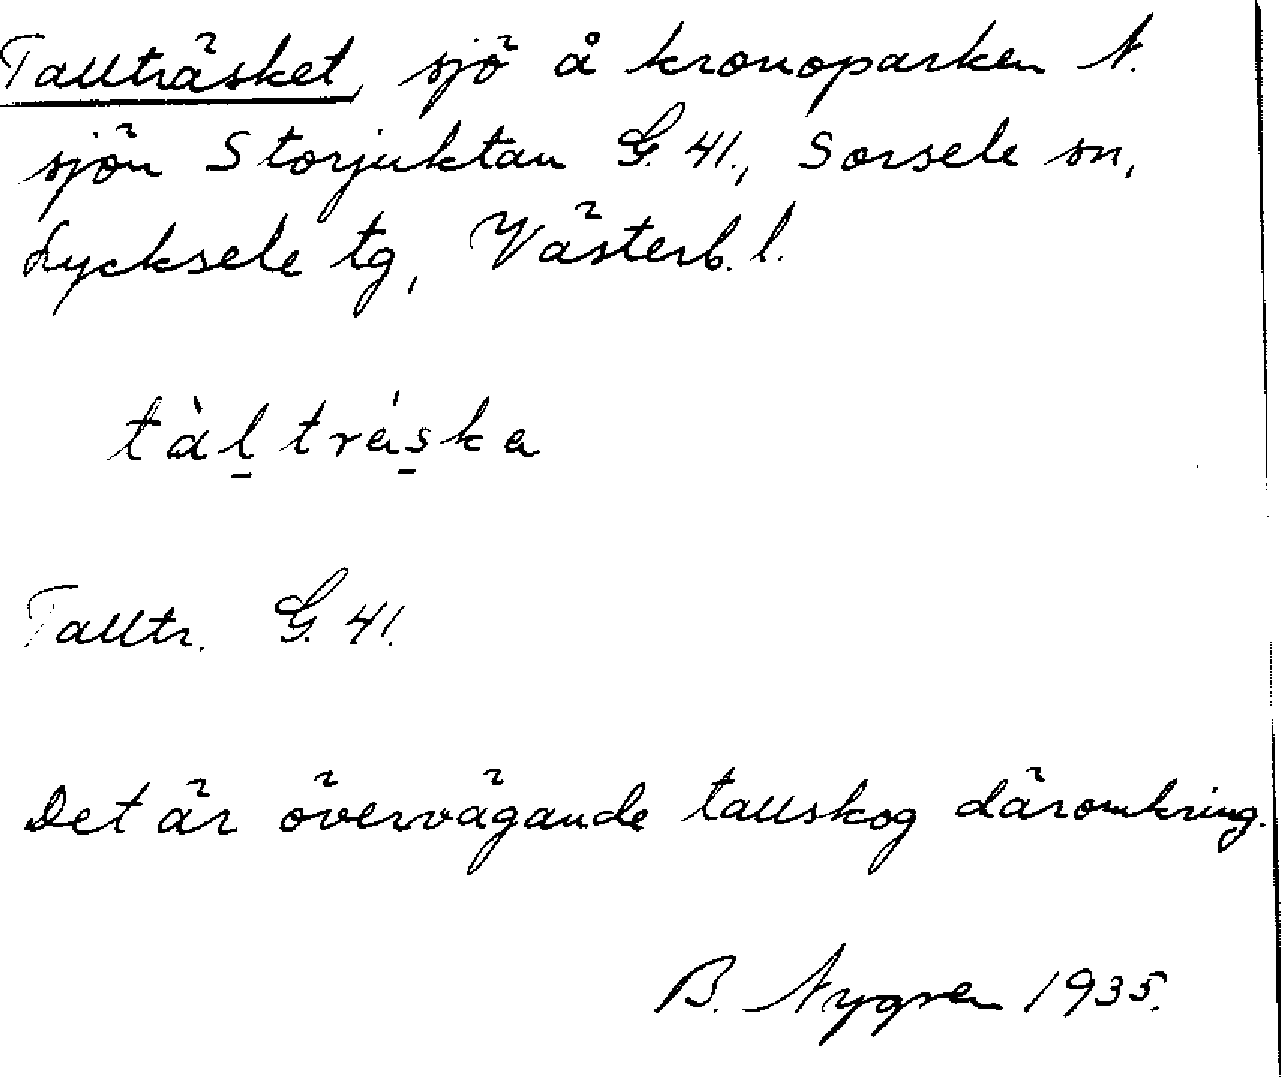 Tallträsket, sjö å kronoparken N.
sjön Storjuktan G. 41., Sorsele sn,
Lycksele tg, Västerb. l.
tàl̠ trás̠ka
Talltr. G. 41.
Det är övervägande tallskog däromkring.
B. Nygren 1935.